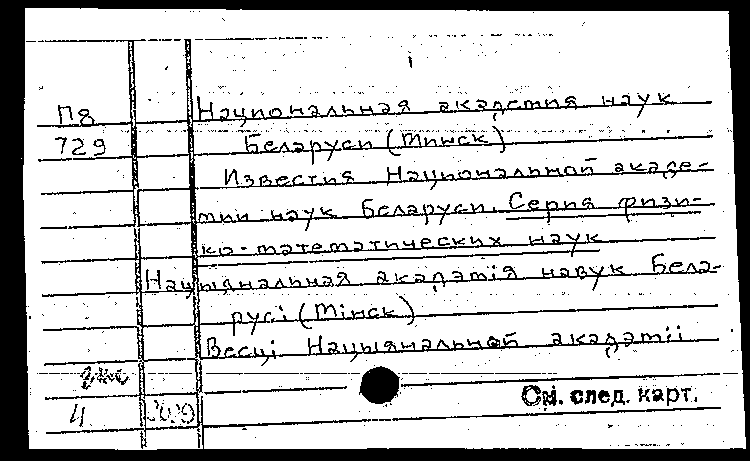 П8 Национальная академия наук
729 Беларуси (Минск)
Известия Национальной акаде-
мии наук Беларуси. Серия физи-
ко-математических наук
Нацыянальная акадэмія навук Бела-
русі (Мінск)
Весці Нацыянальнай акадэміі
4
См. след. карт.